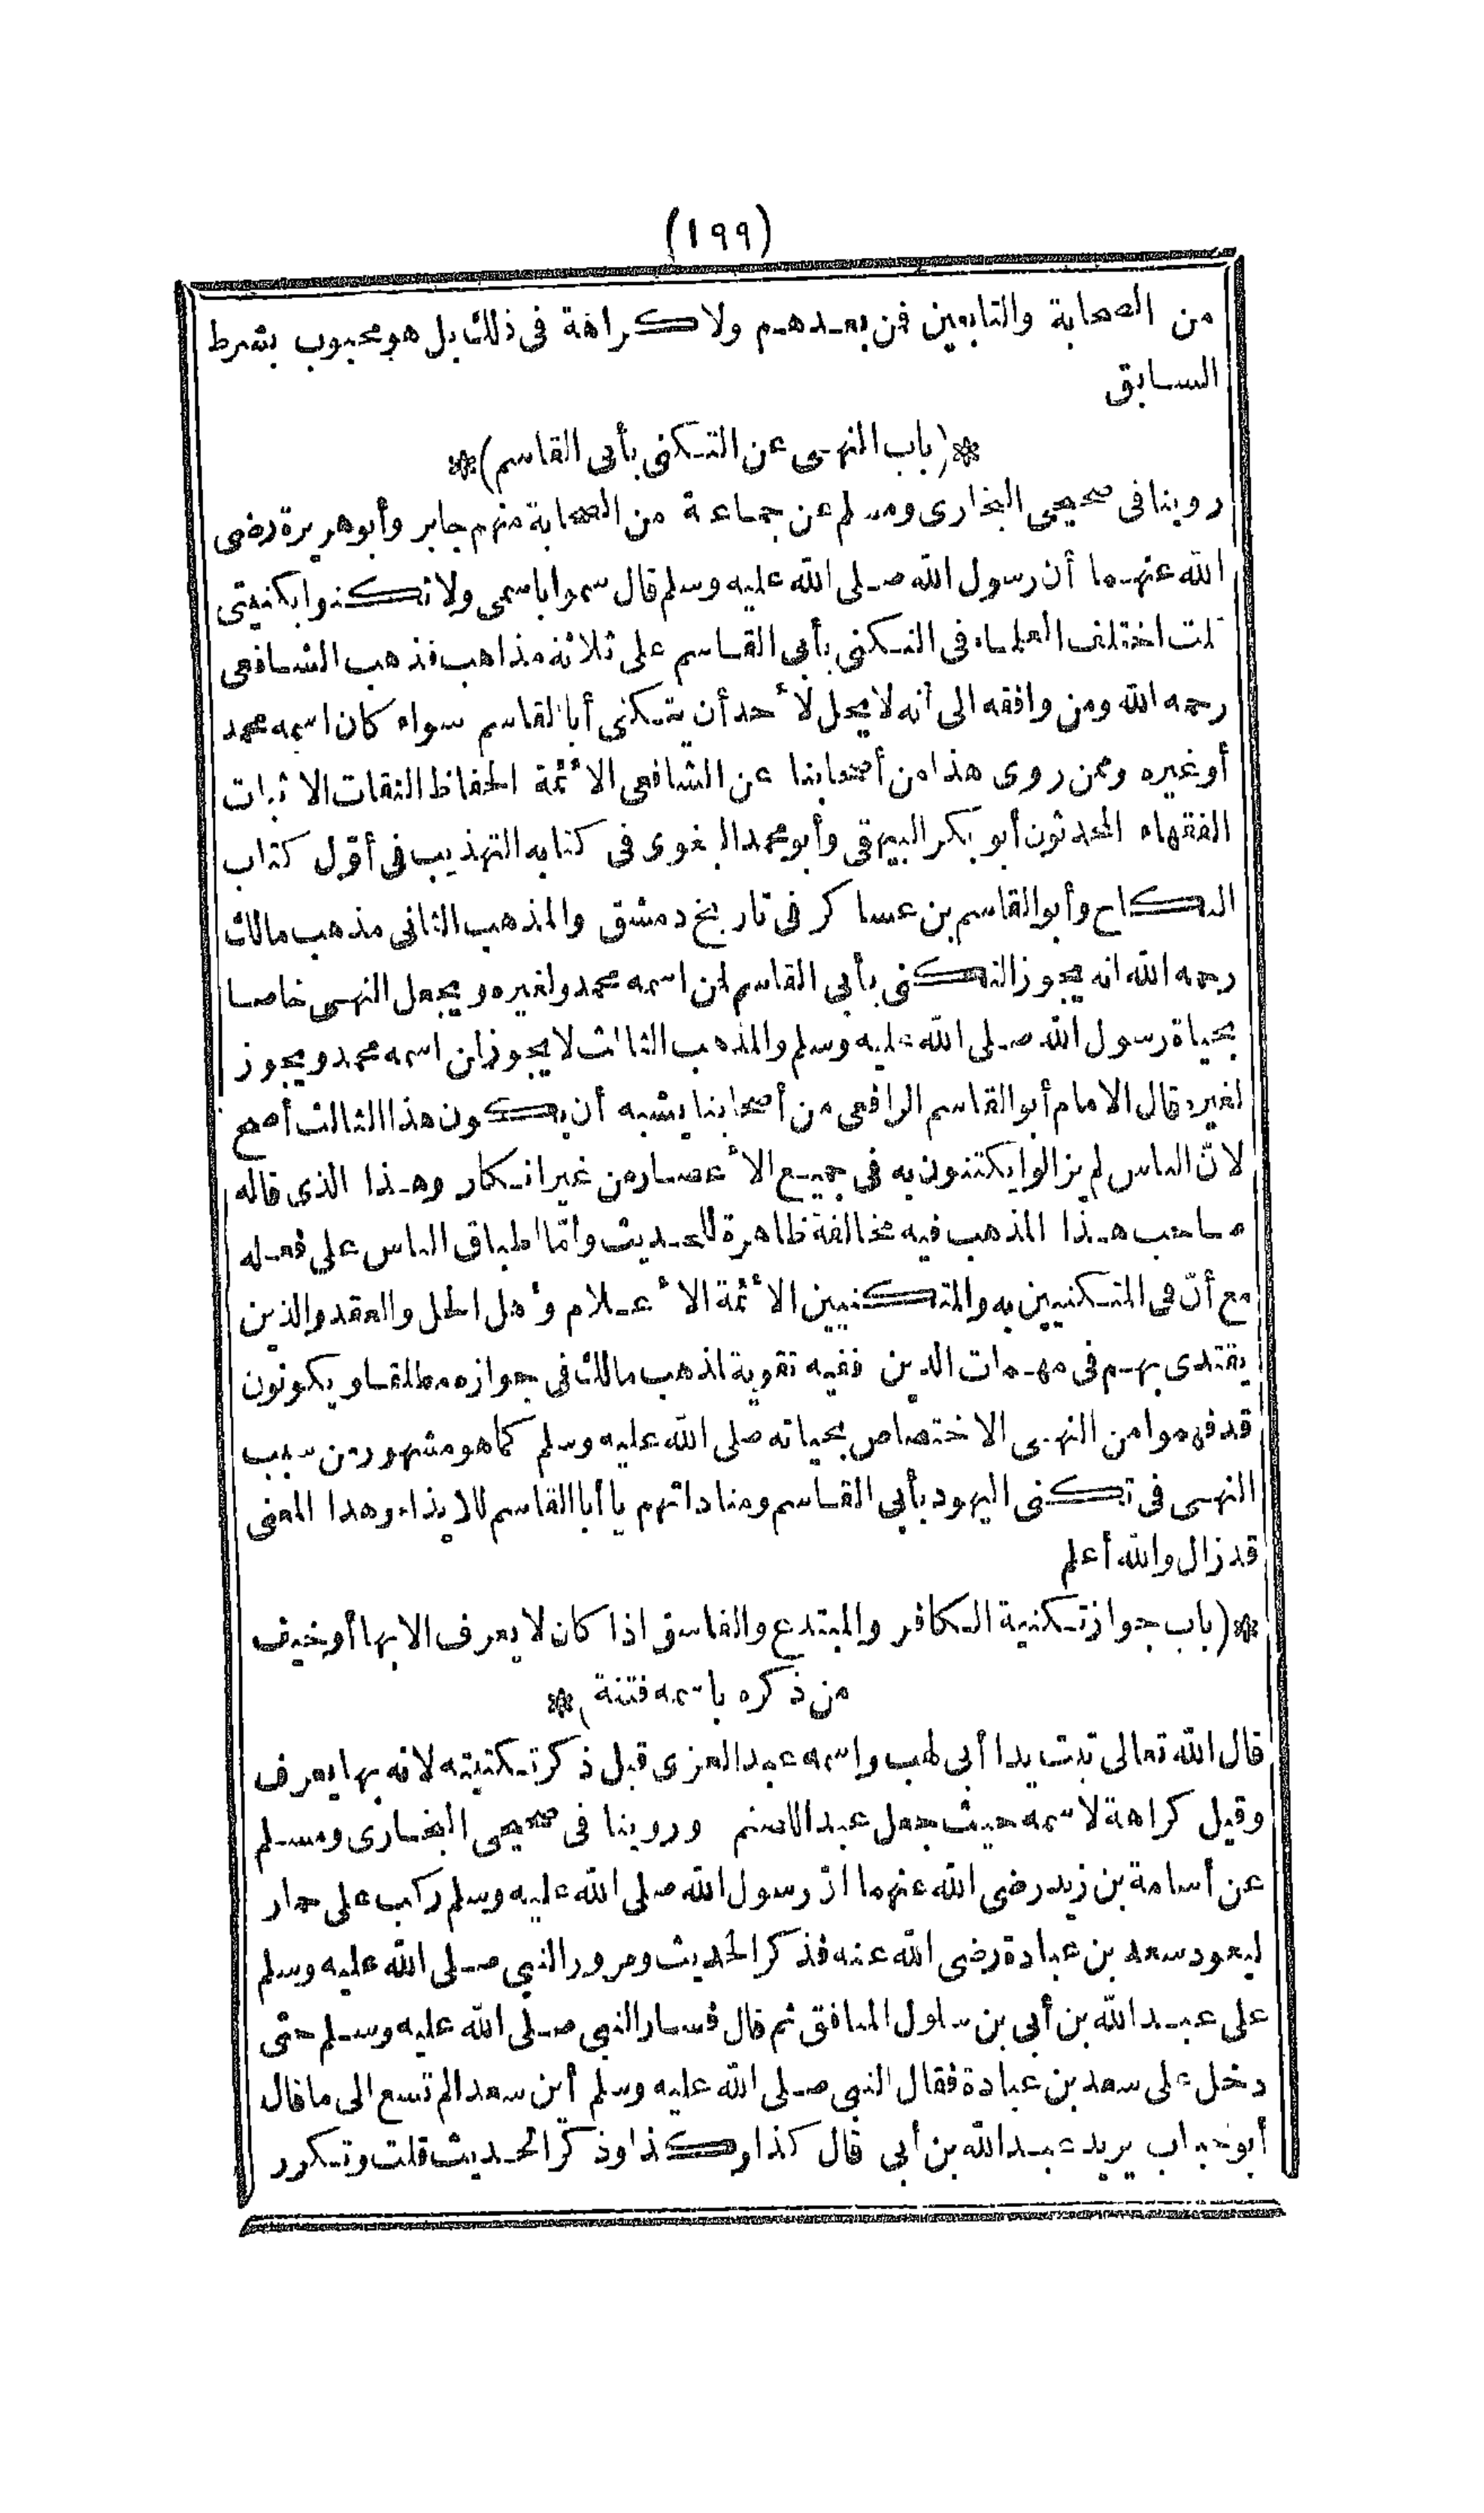 (١٩٩)
من الصحابة والتابعين فمن بعدهم ولا كراهة فى ذلك بل هو محبوب بشرط
السابق
*(باب النهى عن التكنى بأبى القاسم)*
روينا فى صحيحى البخارى ومسلم عن جماعة من الصحابة منهم جابر وأبو هريرة رضى
الله عنهما أن رسول الله صلى الله عليه وسلم قال سموا باسمى ولا تكنوا بكنيتى
قلت اختلف العلماء فى التكنى بأبى القاسم على ثلاثة مذاهب فذهب الشافعى
رحمه الله ومن وافقه الى أنه لا يحل لأحد أن يتكنى أبا القاسم سواء كان اسمه محمد
أو غيره وممن روى هذا من أصحابنا عن الشافعى الأئمة الحفاظ الثقات الاثبات
الفقهاء المحدثون أبو بكر البيهقى وأبو محمد البغوى فى كتابه التهذيب فى أوّل كتاب
النكاح وأبو القاسم بن عساكر فى تاريخ دمشق والمذهب الثانى مذهب مالك
رحمه الله انه يجوز التكنى بأبى القاسم لمن اسمه محمد ولغيره ويجعل النهى خاصا
بحياة رسول الله صلى الله عليه وسلم والمذهب الثالث لا يجوز لمن اسمه محمد ويجوز
لغيره قال الامام أبو القاسم الرافعى من أصحابنا يشبه أن يكون هذا الثالث أصح
لانّ الناس لم يزالوا يكتنون به فى جميع الأعصار من غير انكار وهذا الذى قاله
صاحب هذا المذهب فيه مخالفة ظاهرة للحديث وامّا اطباق الناس على فعله
مع أنّ فى المتكنيين به والمتكنيين الأئمة الأعلام وأهل الحل والعقد والذين
يقتدى بهم فى مهمات الدين ففيه تقوية لمذهب مالك فى جوازه مطلقا ويكونون
قد فهموا من النهى الاختصاص بحياته صلى الله عليه وسلم كما هو مشهور من سبب
النهى فى تكنى اليهود بأبى القاسم ومناداتهم يا أبا القاسم للايذاء وهذا المعنى
قد زال والله أعلم
*(باب جواز تكنية الكافر والمبتدع والفاسق اذا كان لا يعرف الا بها أو خيف
من ذكره باسمه فتنة)*
قال الله تعالى تبت يدا أبى لهب واسمه عبد العزى قبل ذكر تكنيته لانه بها يعرف
وقيل كراهة لاسمه حيث جعل عبدا للصنم وروينا فى صحيحى البخارى ومسلم
عن أسامة بن زيد رضى الله عنهما انّ رسول الله صلى الله عليه وسلم ركب على حمار
ليعود سعد بن عبادة رضى الله عنه فذكر الحديث ومرور النبى صلى الله عليه وسلم
على عبد الله بن أبى بن سلول المنافق ثم قال فسار النبى صلى الله عليه وسلم حتى
دخل على سعد بن عبادة فقال النبى صلى الله عليه وسلم أين سعد الم تسمع الى ما قال
أبو حباب يريد عبد الله بن أبى قال كذا وكذا وذكر الحديث قلت وتكرر